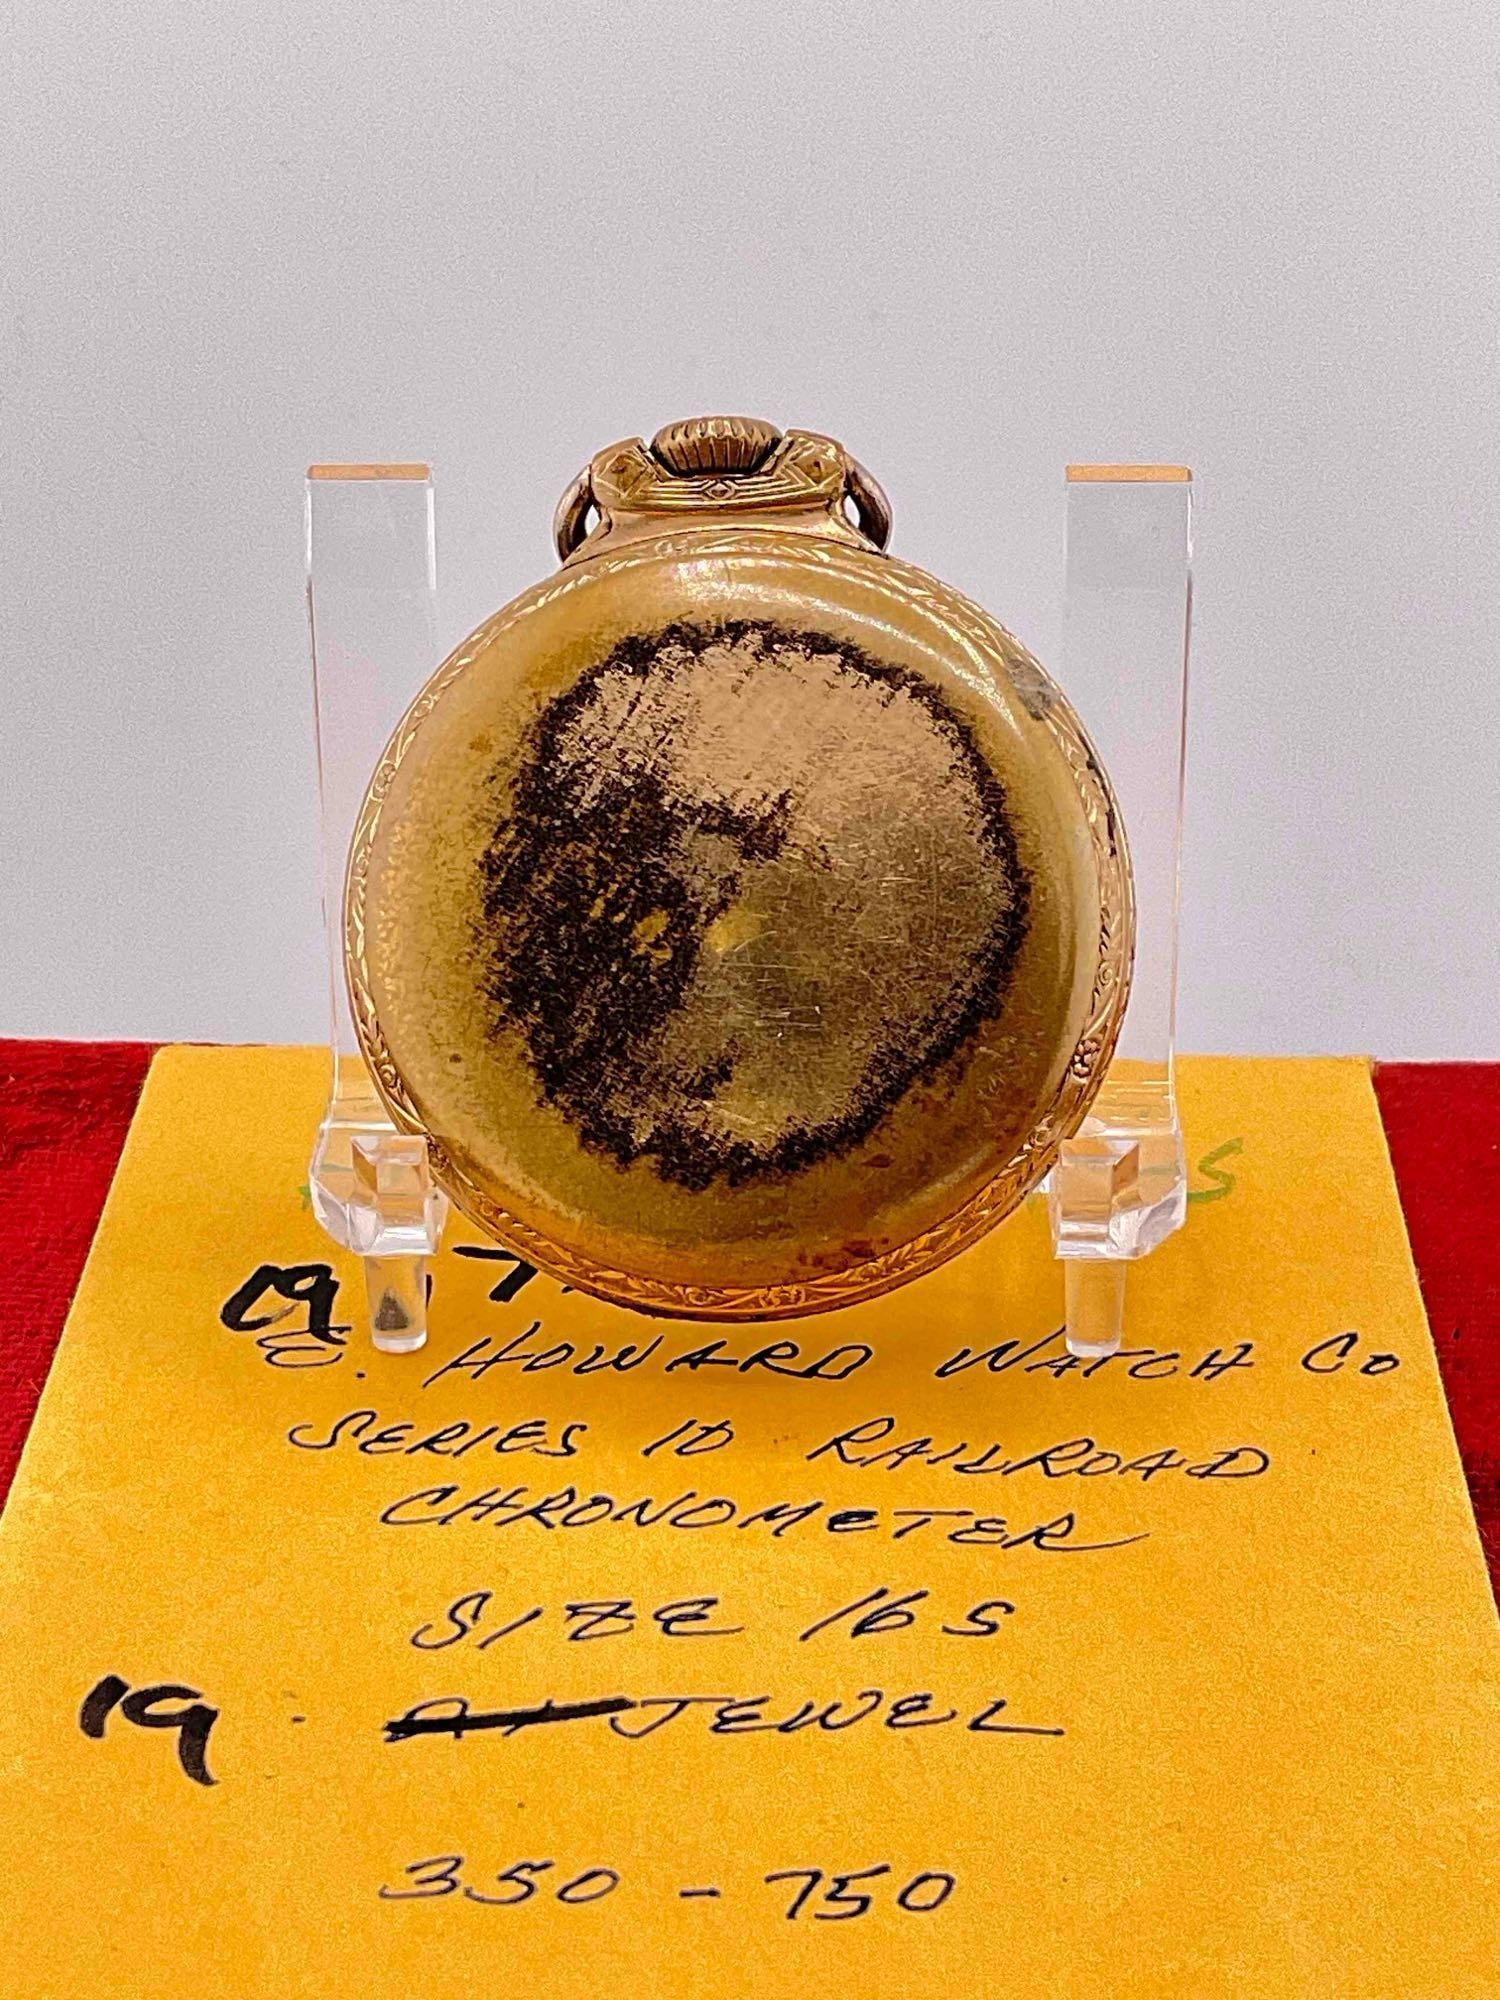 19
E. HOWARD WATCH CO
SERIES 10 RAILROAD
CHRONOMETER
SIZE 16 S
19. JEWEL
350 - 750